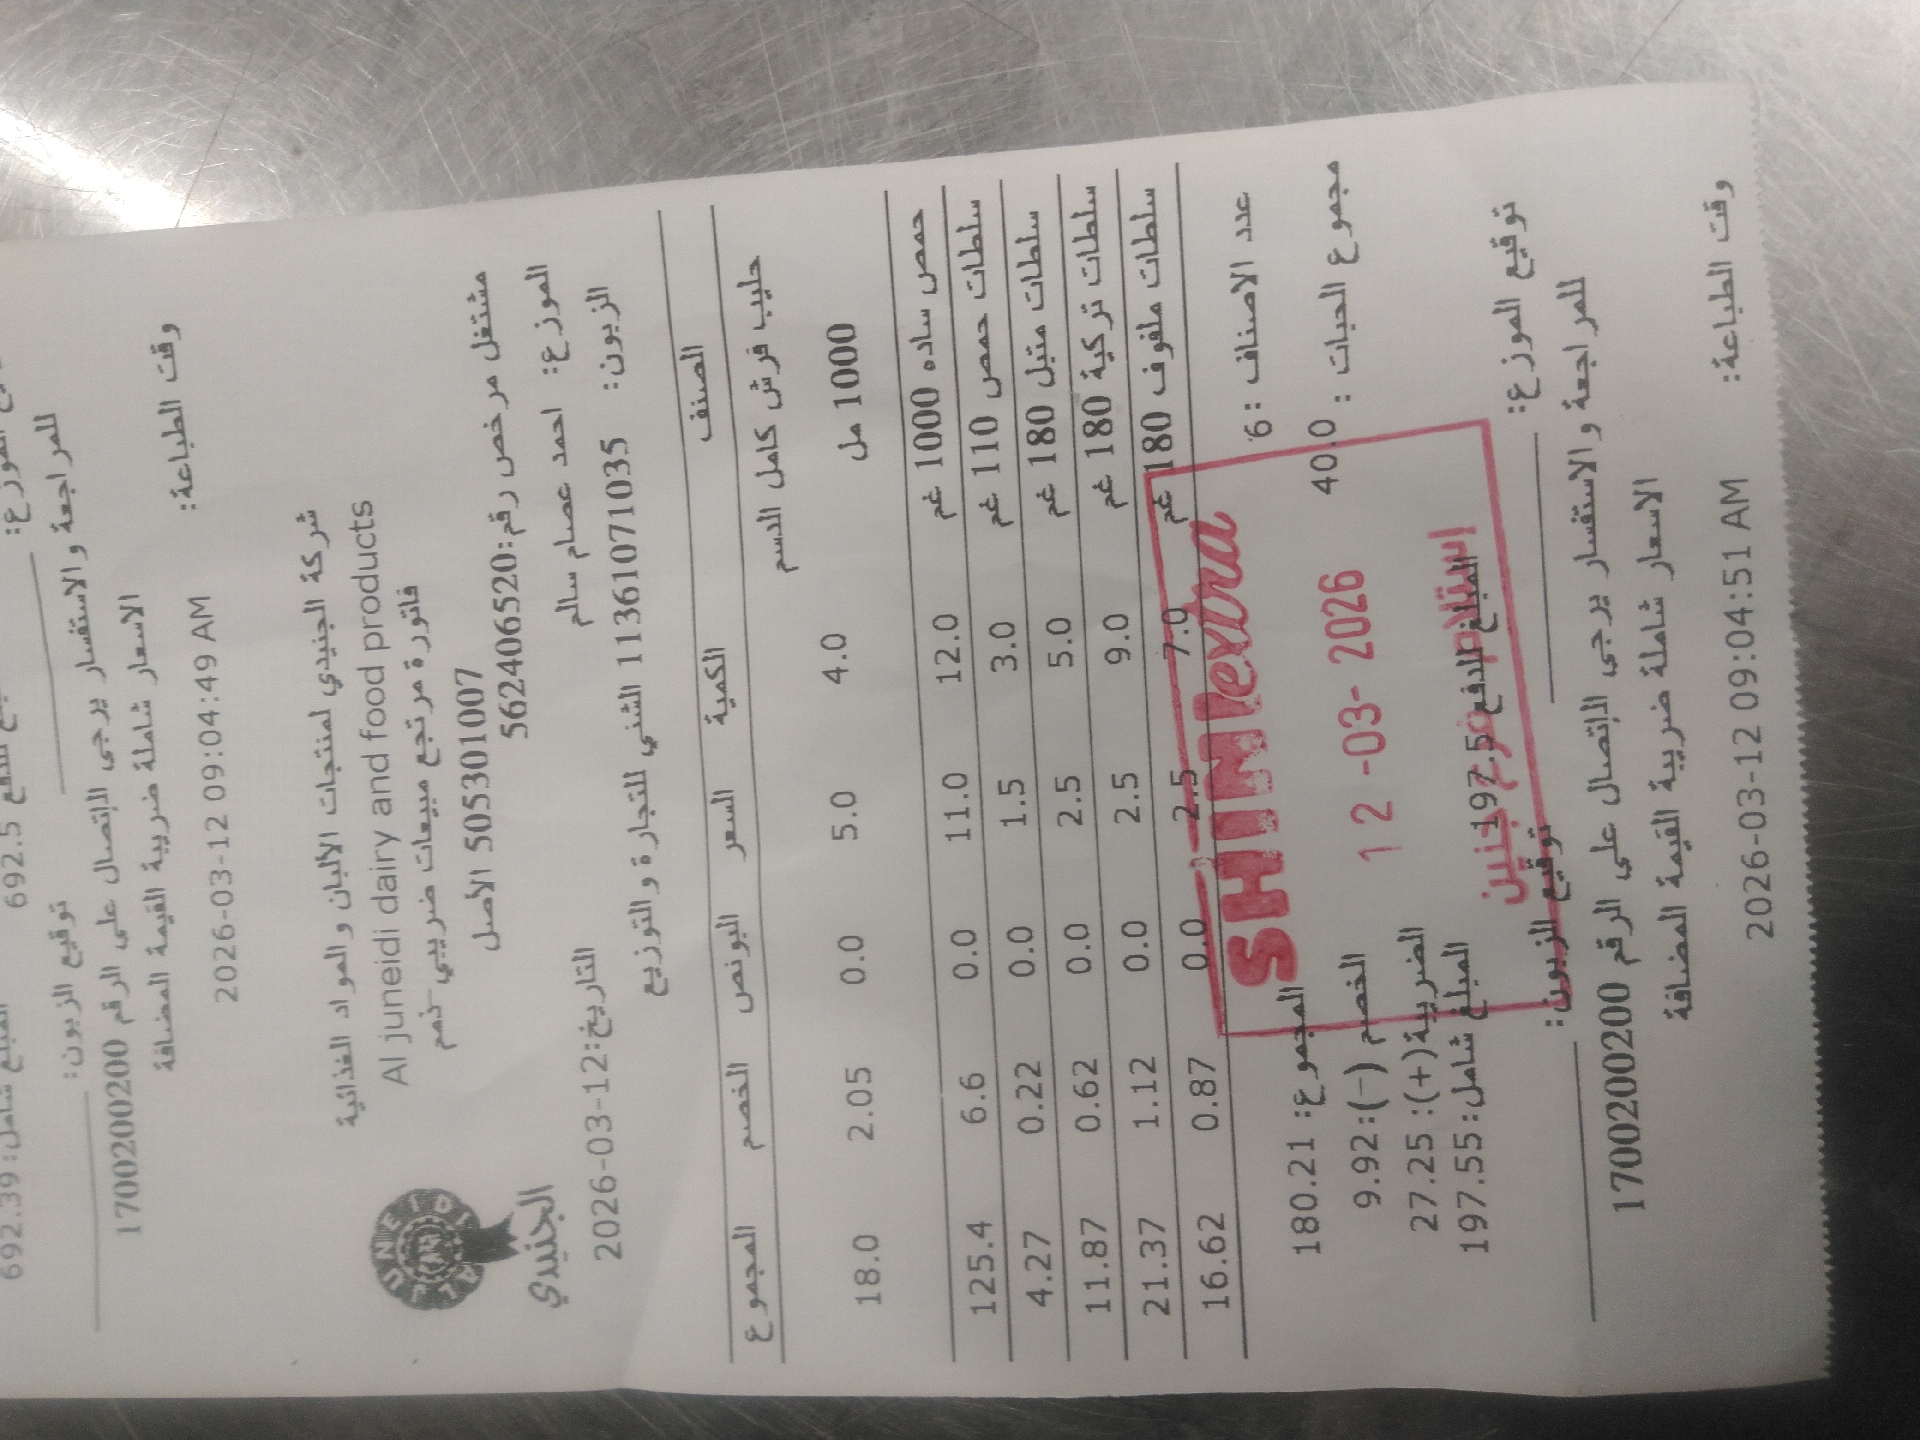 توقيع الموزع:
المبلغ شامل: 692.39
692.5
توقيع الزبون:
للمراجعة والاستفسار يرجى الاتصال على الرقم 1700200200
الاسعار شاملة ضريبة القيمة المضافة
وقت الطباعة: 2026-03-12 09:04:49 AM
شركة الجنيدي لمنتجات الالبان والمواد الغذائية
Al juneidi dairy and food products
فاتورة مرتجع مبيعات ضريبي ذمم
505301007 الأصل
AL JUNEIDI
الجنيدي
مشتغل مرخص رقم: 562406520
الموزع: احمد عصام سالم
التاريخ: 2026-03-12
الزبون: 11361071035 الشني للتجارة والتوزيع
الصنف الكمية السعر البونص الخصم المجموع
حليب فرش كامل الدسم 1000 مل 4.0 5.0 0.0 2.05 18.0
حمص ساده 1000 غم 12.0 11.0 0.0 6.6 125.4
سلطات حمص 110 غم 3.0 1.5 0.0 0.22 4.27
سلطات متبل 180 غم 5.0 2.5 0.0 0.62 11.87
سلطات تركية 180 غم 9.0 2.5 0.0 1.12 21.37
سلطات ملفوف 180 غم 7.0 2.5 0.0 0.87 16.62
عدد الاصناف : 6
المجموع: 180.21
مجموع الحبات : 40.0
الخصم (-): 9.92
الضريبة(+): 27.25
المبلغ للدفع 197.5
المبلغ شامل: 197.55
SHINI extra
12-03-2026
إستلام فرع جنين
توقيع الموزع:
توقيع الزبون:
للمراجعة والاستفسار يرجى الاتصال على الرقم 1700200200
الاسعار شاملة ضريبة القيمة المضافة
وقت الطباعة: 2026-03-12 09:04:51 AM